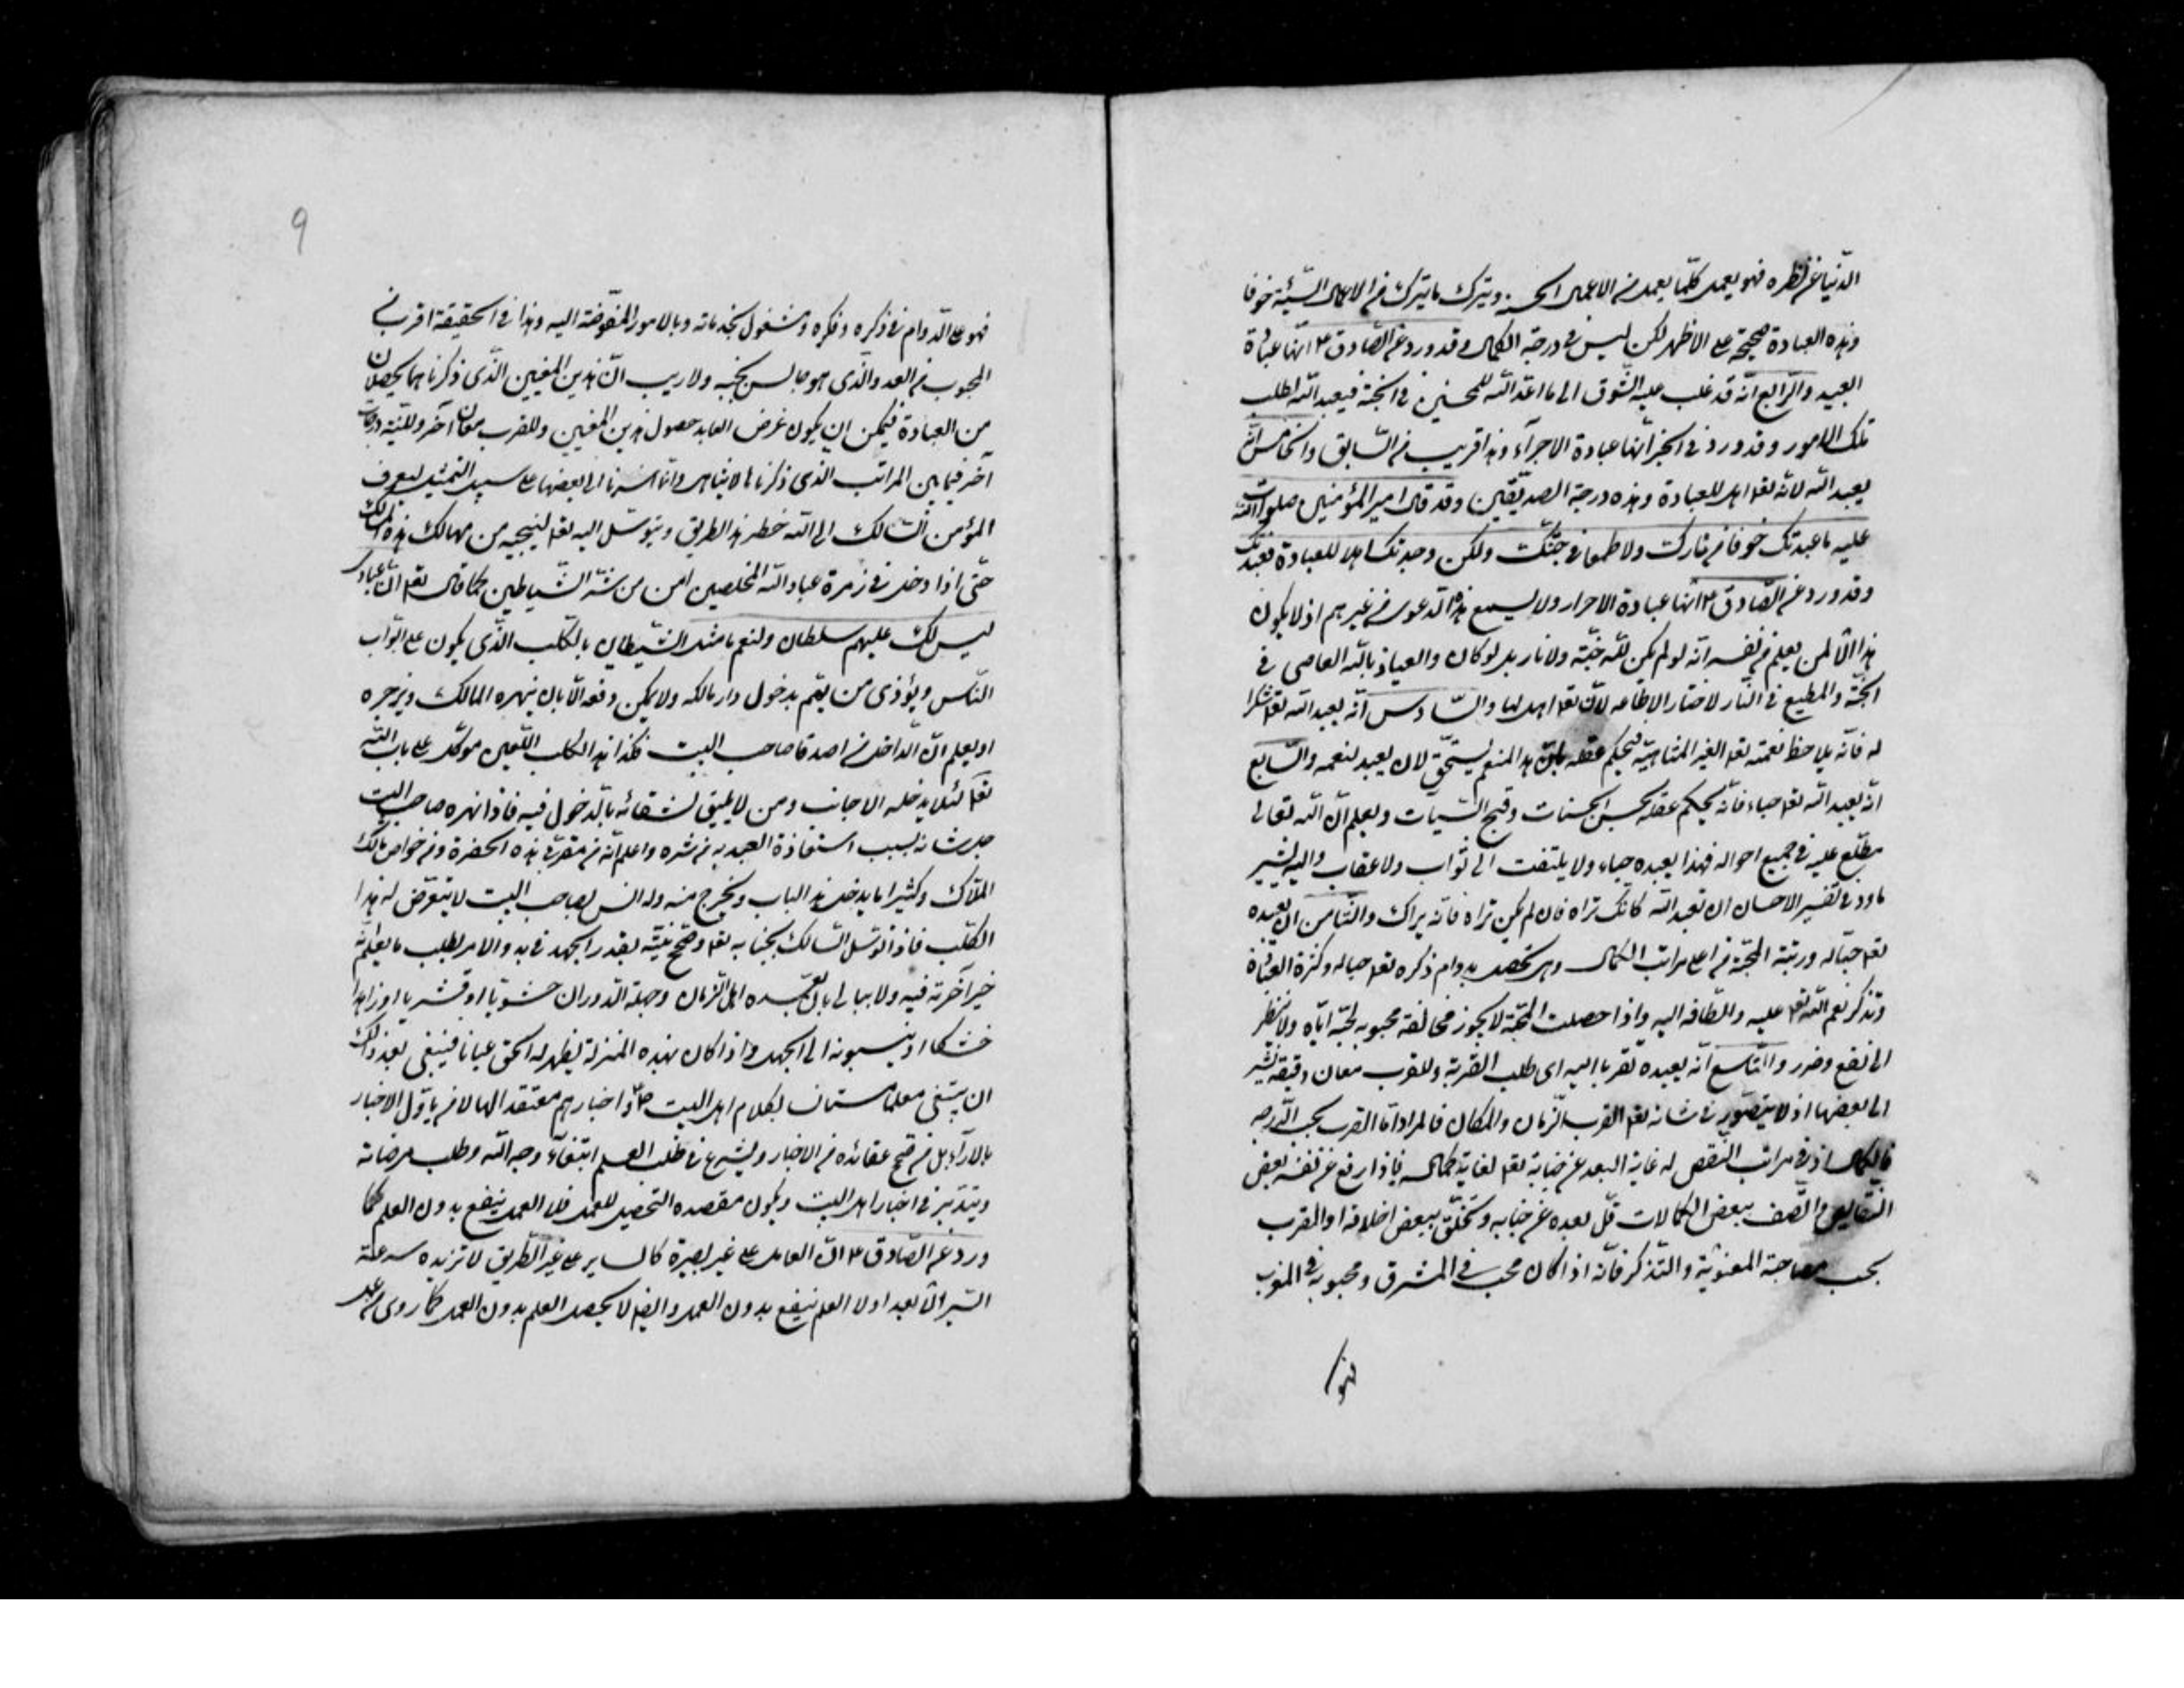 الدّنيا عن نظره فهو يعمل كلّما يعمل من الاعمال الحسنة ويترك ما يترك من الاعمال السّيّئة خوفا
وهذه العبادة صحيحة على الاظهر لكن ليس في درجة الكمال وقد ورد عن الصّادق ع انّها عبادة
العبيد والرّابع انّه قد غلب عليه الشّوق الى ما اعدّ اللّه للمحسنين في الجنّة فيعبد اللّه لطلب
تلك الامور وقد ورد في الخبر انّها عبادة الاجراء وهذا قريب من السّابق والخامس انّه
يعبد اللّه لانّه تعا اهل للعبادة وهذه درجة الصدّيقين وقد قال امير المؤمنين صلوات اللّه
عليه ما عبدتك خوفا من نارك ولا طمعا في جنّتك ولكن وجدتك اهلا للعبادة فعبدتك
وقد ورد عن الصّادق ع انّها عبادة الاحرار ولا يسمع هذه الدّعوى من غيرهم اذ لا يكون
هذا الّا لمن يعلم من نفسه انّه لو لم يكن للّه جنّة ولا نار بل لو كان والعياذ باللّه العاصى في
الجنّة والمطيع في النّار لاختار الاطاعه لانّه تعا اهل لها والسّادس انّه يعبد اللّه تعا شكرا
له فانّه يلاحظ نعمته تعا الغير المتناهية فيحكم عقله بانّ هذا المنعم يستحقّ لان يعبد لنعمه والسّابع
انّه يعبد اللّه تعا حياء فانّه يحكم عقله بحسن الحسنات وقبح السّيّات ويعلم انّ اللّه تعالى
مطّلع عليه في جميع احواله فهذا يعبده حياء ولا يلتفت الى ثواب ولا عقاب واليه يشير
ما ورد في تفسير الاحسان ان تعبد اللّه كانّك تراه فان لم تكن تراه فانّه يراك والثّامن ان يعبده
تعا حبّا له ورتبة المحبّة من اعلى مراتب الكمال وهى تحصل بدوام ذكره تعا حبا له وكثرة العبادة
وتذكر نعم اللّه تعا عليه والطافه اليه واذا حصلت المحبّة لا يجوز مخالفة محبوبه لحبّه ايّاه ولا ينظر
الى نفع وضرر والتّاسع انّه يعبده تقربا اليه اى طلب القربة وللقرب معان دقيقة نشير
الى بعضها اذ لا يتصوّر في شانه تعا القرب الزّمان والمكان فالمراد امّا القرب بحسب الدّرجه
فالكمال اذ في مراتب النّقص له غاية البعد عن جنابه تعا لغاية كماله فاذا رفع عن نفسه بعض
النّقايص واتّصف ببعض الكمالات قلّ بعده عن جنابه وتخلّق ببعض اخلاقه او القرب
بحسب مصاحبة المعنويّة والتّذكر فانّه اذا كان محب في المشرق ومحبوبه في المغرب
فهو
9
فهو على الدّوام في ذكره وفكره ومشغول بخدماته وبالامور المفوّضة اليه وهذا في الحقيقة اقرب
المحبوب من العدو والّذى هو جالس بجنبه ولا ريب انّ هذين المعنيين الّذى ذكرناهما يحصلان
من العبادة فيمكن ان يكون غرض العابد حصول هذين المعنيين وللقرب معان آخر وللنّية درجات
آخر فيما بين المراتب الذى ذكرناها لا يتناهى وانّما اشرنا الى بعضها على سبيل التمثيل ليعرف
المؤمن السّالك الى اللّه خطر هذا الطريق ويتوسّل اليه تعا لينجيه من مهالك هذه المسالك
حتّى اذا دخل في زمرة عباد اللّه المخلصين امن من شرّ الشّياطين كما قال تعا انّ عبادى
ليس لك عليهم سلطان ولنعم ما مثل الشّيطان بالكلب الّذى يكون على ابواب
النّاس ويؤذى من يهمّ بدخول دار مالكه ولا يمكن دفعه الّا بان ينهره المالك ويزجره
او يعلم انّ الدّاخل من اصدقا صاحب البيت فكذا هذا الكلب اللّعين موكّل على باب اللّه
تعا لئلا يدخله الاجانب ومن لا يليق لشقائه بالدّخول فيه فاذا نهره صاحب البيت
جلّ شانه بسبب استعاذة العبد به من شره واعلم انّه من مقرّبي هذه الحضرة ومن خواص مالك
الملّاك وكثيرا ما يدخل هذا الباب ويخرج منه وله انس بصاحب البيت لا يتعرّض له هذا
الكلب فاذا توسّل السّالك بجنابه تعا وصحّح نيّته بقدر الجهد في بدو الامر يطلب ما يعلم انّه
خير آخرته فيه ولا يبالى بان يعدّه اهل الزّمان وجهلة الدّوران حشويّا او قشريا او زاهدا
خشكا او ينسبونه الى الجهل واذا كان بهذه المنزلة يظهر له الحقّ عيانا فينبغى بعد ذلك
ان يبتغى معلما مستانسا بكلام اهل البيت ع واخبارهم معتقدا لها لا من ياوّل الاخبار
بالاراء بل من صحّح عقائده من الاخبار ويشرع في طلب العلم ابتغاء وجه اللّه وطلب مرضاته
ويتدبّر في اخبار اهل البيت ويكون مقصده التحصيل للعمل فلا العمل ينفع بدون العلم كما
ورد عن الصّادق ع انّ العامل على غير بصيرة كالساير على غير الطّريق لا تزيده سرعة
السّير الّا بعدا ولا العلم ينفع بدون العمل وايضا لا يحصل العلم بدون العمل كما روى من عمل